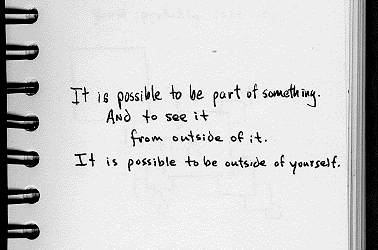 It is possible to be part of something.
And to see it
from outside of it.
It is possible to be outside of yourself.